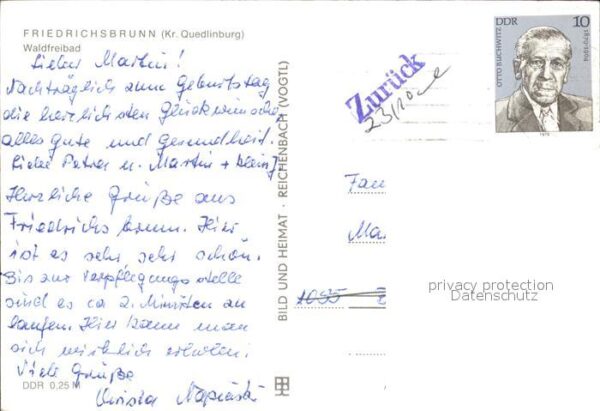 FRIEDRICHSBRUNN (Kr. Quedlinburg)
Waldfreibad
Lieber Martin!
Nachträglich zum Geburtstag
die herzlichsten Glückwünsche
alles gute und gesundheit.
Liebe Petra u. Martin +
Herzliche Grüße aus
Friedrichsbrunn. Hier
ist es sehr, sehr schön.
Bis zur Verpflegungsstelle
sind es ca 2. Minuten zu
laufen. Hier kann man
sich wirklich erholen.
Viele Grüße
Christa
DDR 0,25 M
BILD UND HEIMAT · REICHENBACH (VOGTL)
Zurück
DDR 10
OTTO BUCHWITZ
1879-1964
Fam
Ma
1035
privacy protection
Datenschutz